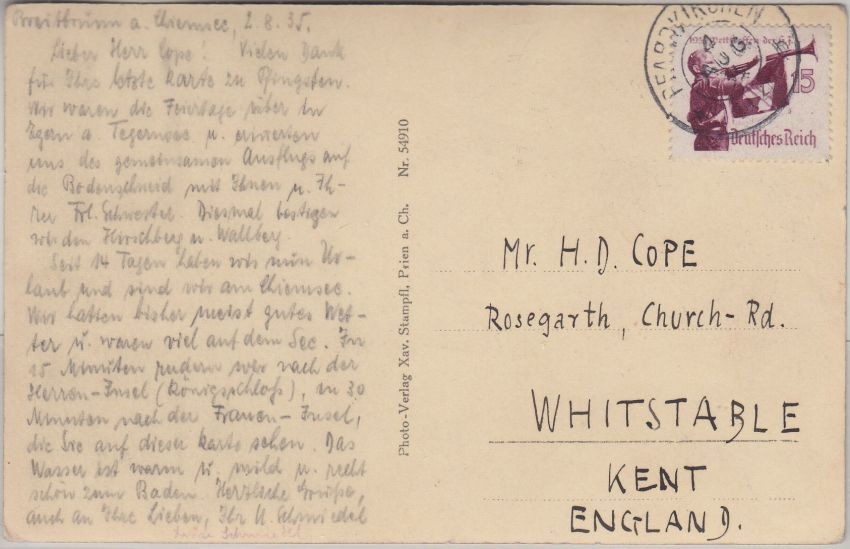 Breitbrunn a. Chiemsee, 2.8.35.
Lieber Herr Cope! Vielen Dank
für Ihre letzte Karte zu Pfingsten.
Wir waren die Feiertage über in
Egern a. Tegernsee u. erinnerten
uns des gemeinsamen Ausflugs auf
die Bodenschneid mit Ihnen u. Ih-
rer Frl. Schwester. Diesmal bestiegen
wir den Hirschberg u. Wallberg.
Seit 14 Tagen haben wir nun Ur-
laub und sind wir am Chiemsee.
Wir hatten bisher meist gutes Wet-
ter u. waren viel auf dem See. In
15 Minuten rudern wir nach der
Herren-Insel (Königsschloß), in 30
Minuten nach der Frauen-Insel,
die Sie auf dieser Karte sehen. Das
Wasser ist warm u. mild u. recht
schön zum Baden. Herzliche Grüße,
auch an Ihre Lieben, Ihr U. Schmiedel
Photo-Verlag Xav. Stampfl, Prien a. Ch. Nr. 54910
PFARRKIRCHEN
4
AUG
15
Deutsches Reich
Mr. H. D. COPE
Rosegarth, Church-Rd.
WHITSTABLE
KENT
ENGLAND.